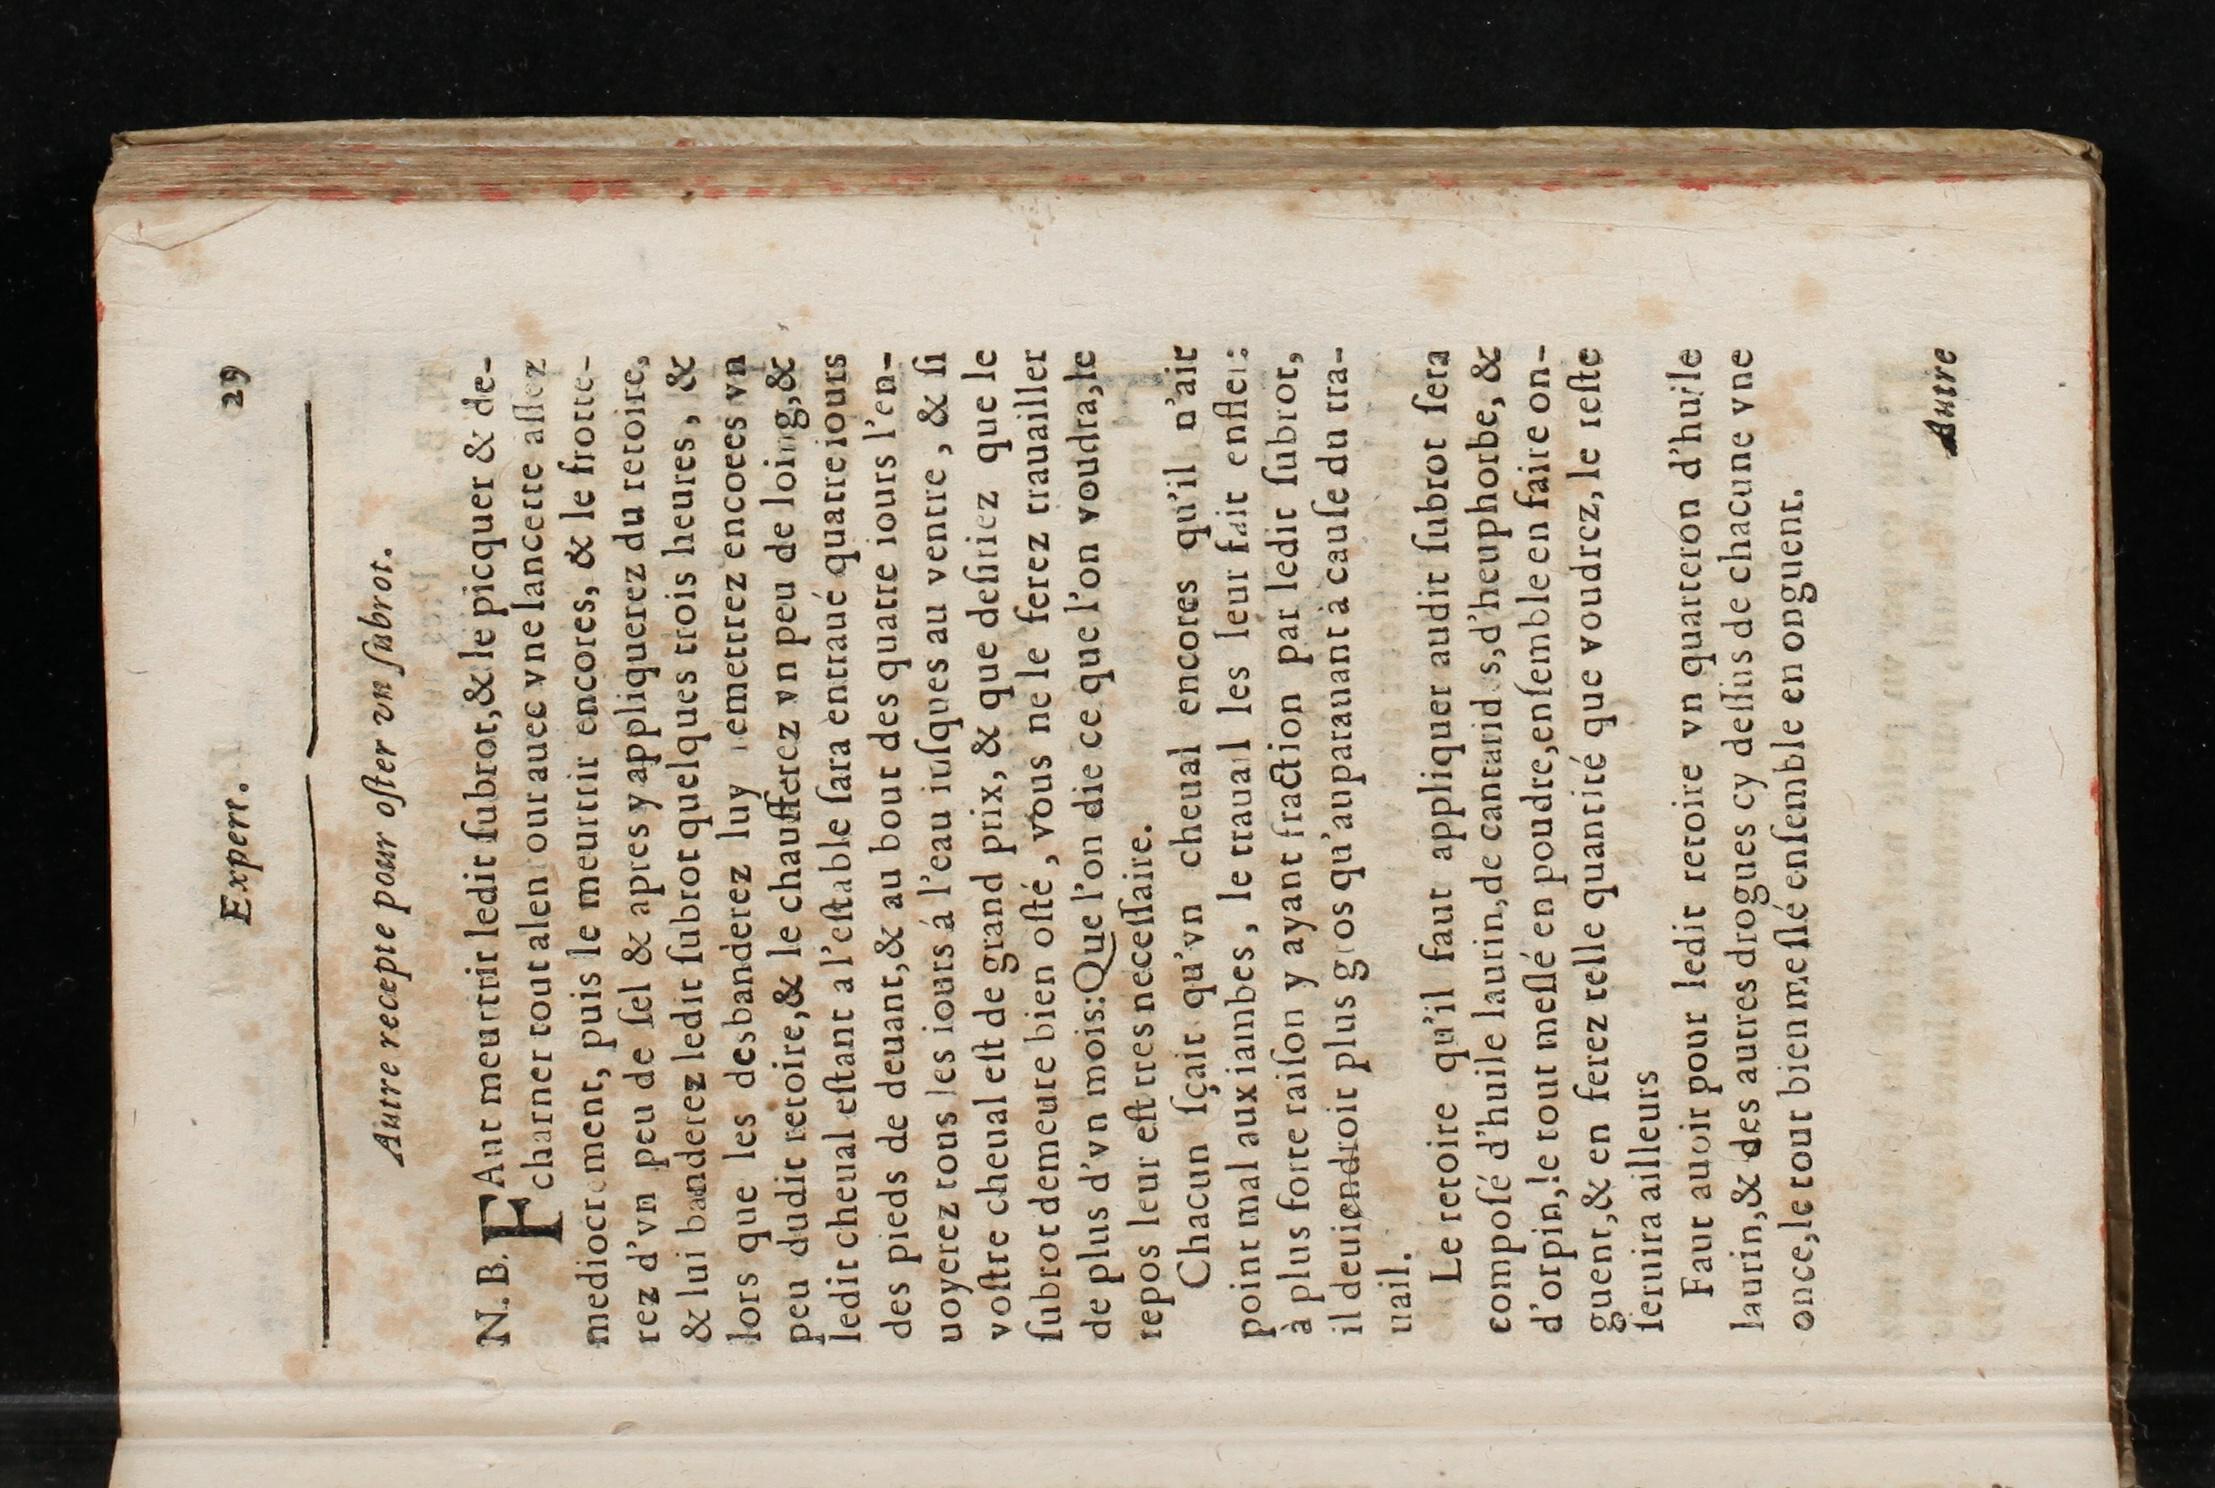 Expert. 29
Autre recepte pour oſter vn ſubrot.
N. B. FAut meurtrir ledit ſubrot,& le picquer & de-
charner tout alentour auec vne lancette aſſez
mediocrement, puis le meurtrir encores, & le frotte-
rez d'vn peu de ſel & apres y appliquerez du retoire,
& lui banderez ledit ſubrot quelques trois heures, &
lors que les desbanderez luy remettrez encores vn
peu dudit retoire,& le chaufferez vn peu de loing,&
ledit cheual eſtant a l'eſtable ſara entraué quatre iours
des pieds de deuant,& au bout des quatre iours l'en-
uoyerez tous les iours á l'eau iuſques au ventre, & ſi
voſtre cheual eſt de grand prix, & que deſiriez que le
ſubrot demeure bien oſté, vous ne le ferez trauailler
de plus d'vn mois:Que l'on die ce que l'on voudra,le
repos leur eſt tres neceſſaire.
Chacun ſçait qu'vn cheual encores qu'il n'ait
point mal aux iambes, le trauail les leur fait enfler:
à plus forte raiſon y ayant fraction par ledit ſubrot,
il deuiendroit plus gros qu'auparauant à cauſe du tra-
uail.
Le retoire qu'il faut appliquer audit ſubrot ſera
compoſé d'huile laurin,de cantarides,d'heuphorbe, &
d'orpin,le tout meſlé en poudre,enſemble en faire on-
guent,& en ferez telle quantité que voudrez, le reſte
ſeruira ailleurs
Faut auoir pour ledit retoire vn quarteron d'huile
laurin,& des autres drogues cy deſſus de chacune vne
once,le tout bien meſlé enſemble en onguent.
Autre